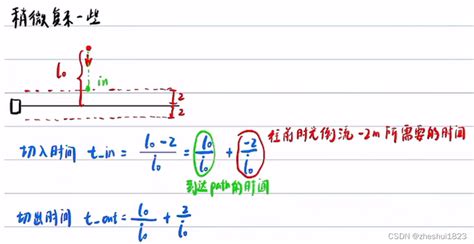 稍微复杂一些
l₀
in
2
2
切入时间 t_in = (l₀-2)/l̇₀ = l₀/l̇₀ + -2/l̇₀ 往前时光倒流-2m所需要的时间
到达path的时间
切出时间 t_out = l₀/l̇₀ + 2/l̇₀
CSDN @zheshui1823